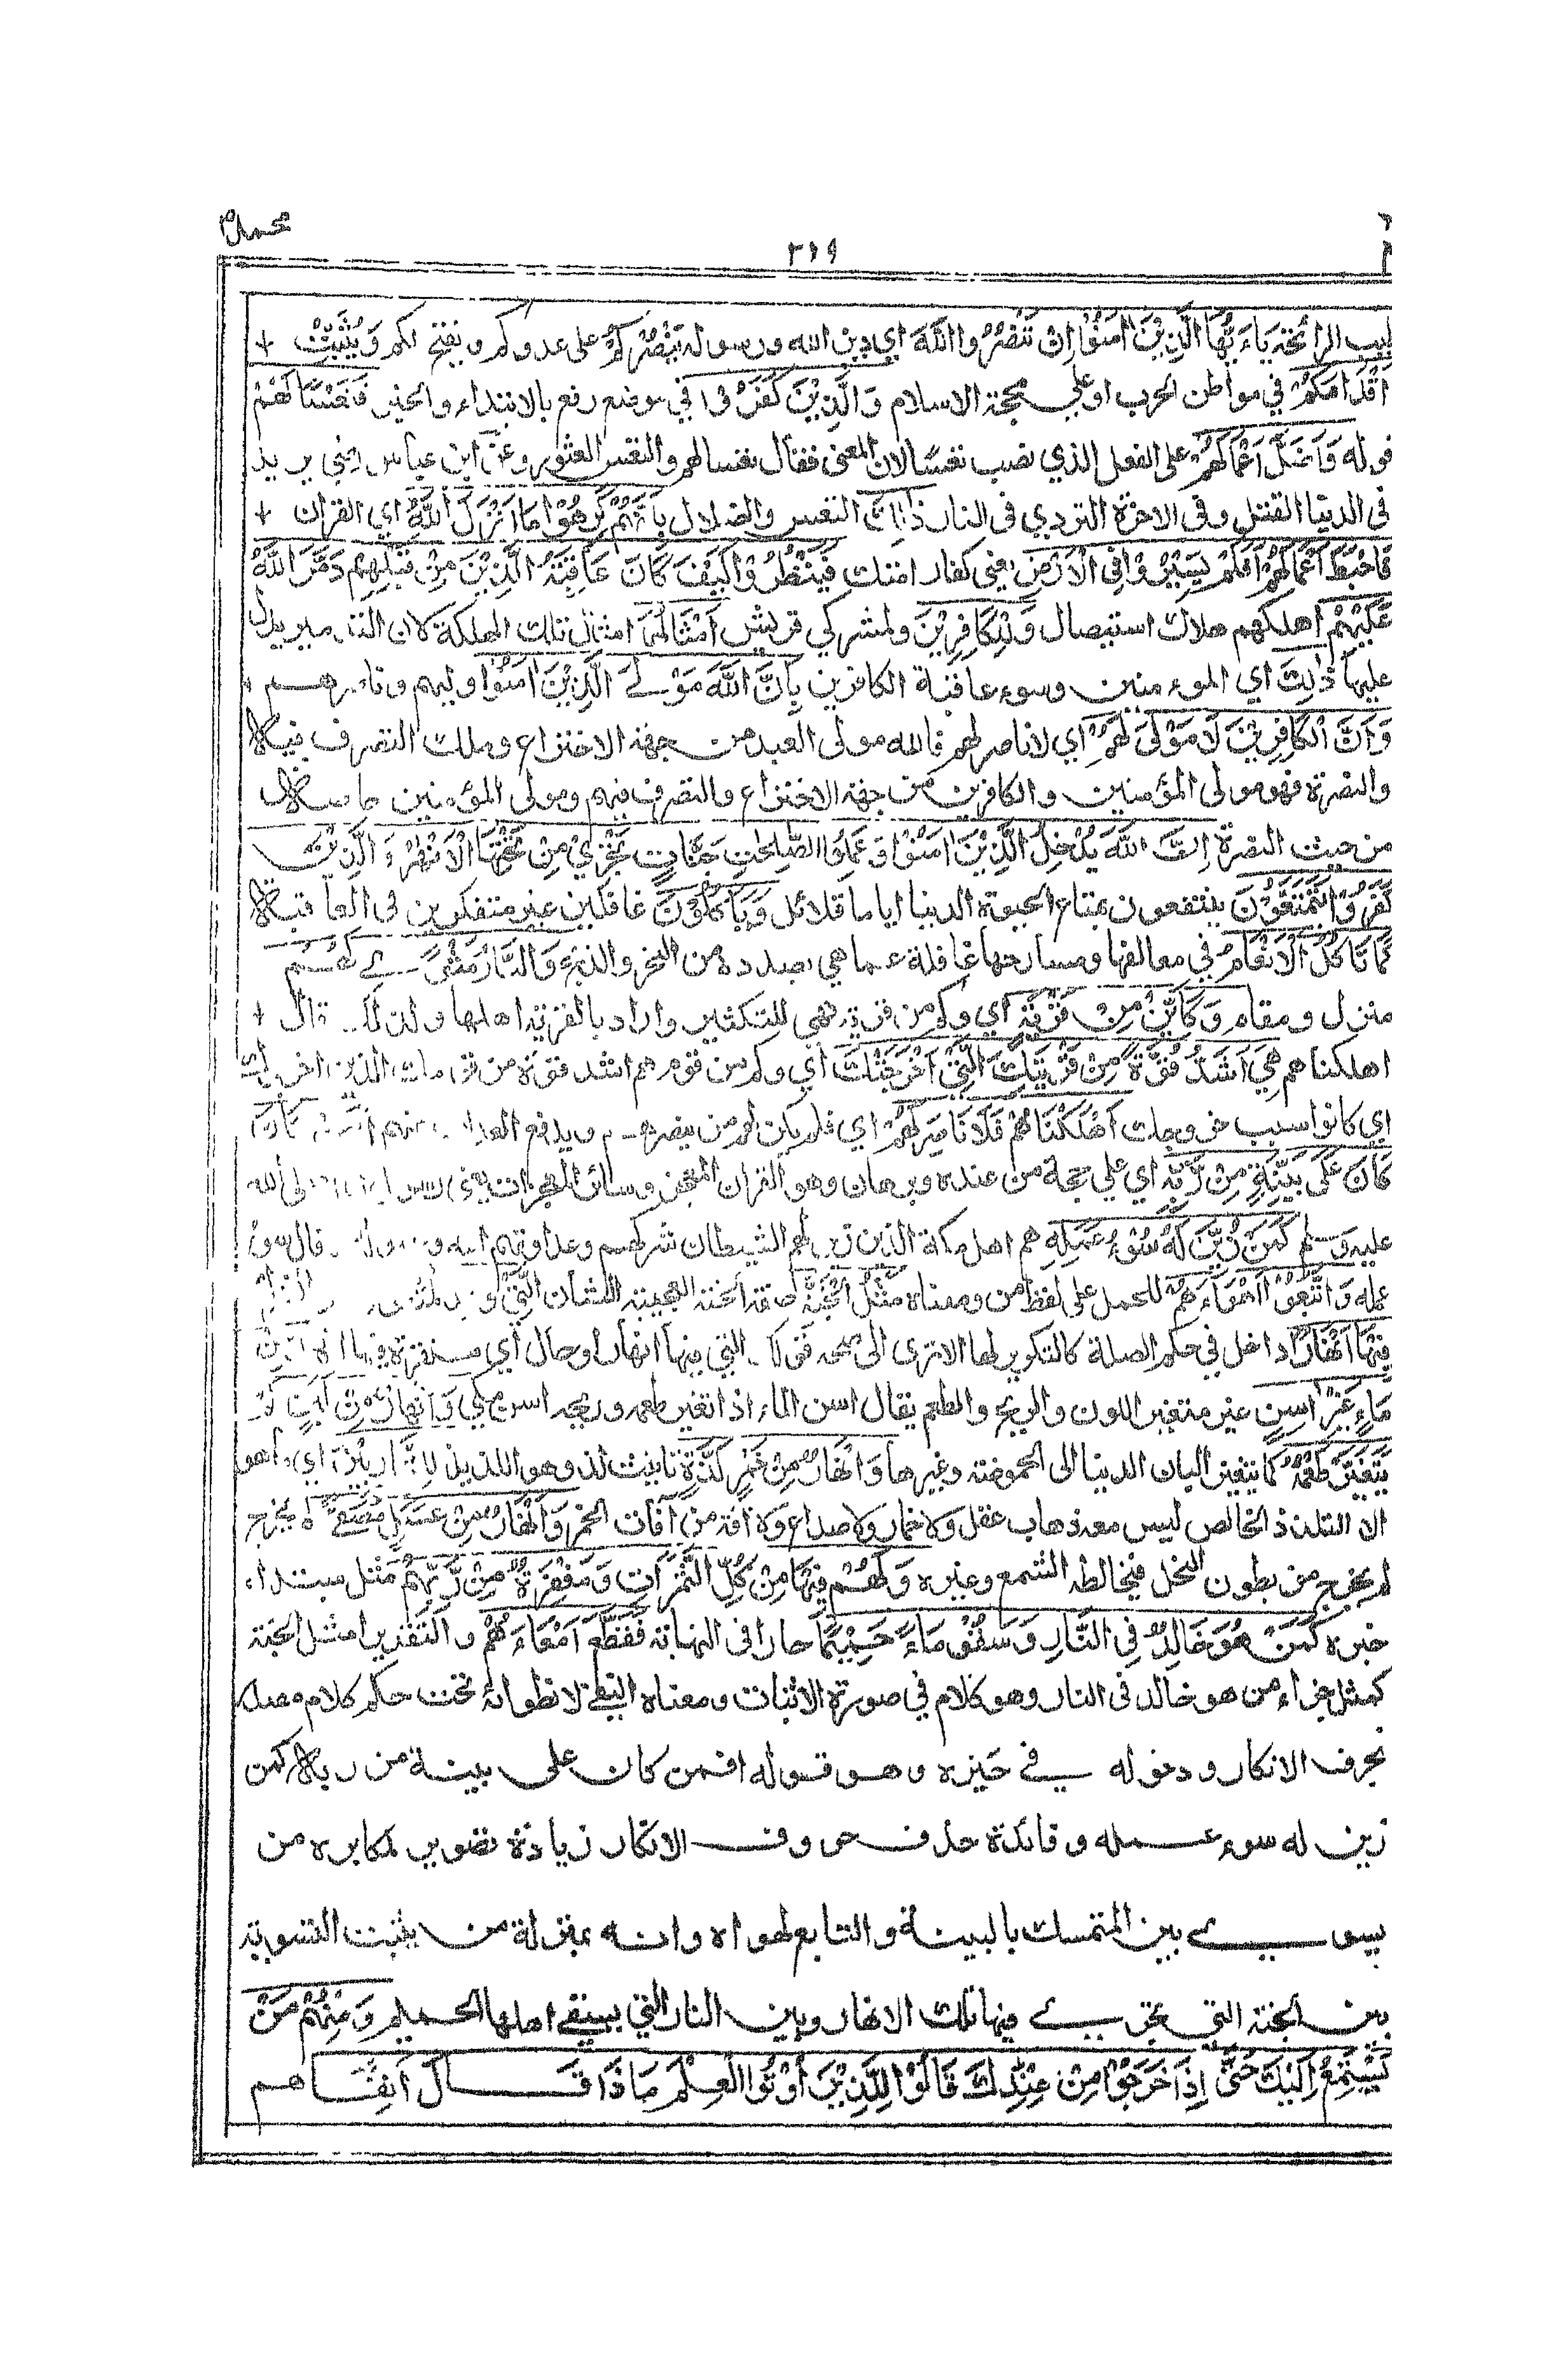 محمد
٣١٩
الرائحة يَاءَيُّهَا الَّذِيْنَ امَنُوْا اِنْ تَنْصُرُوا اللّٰهَ اي دين الله ورسوله يَنْصُرْكُمْ على عدوكم ويفتح لكم وَيُثَبِّتْ
اَقْدَامَكُمْ في مواطن الحرب او على محجة الاسلام وَالَّذِيْنَ كَفَرُوْا في موضع رفع بالابتداء والخبر فَتَعْسًا لَّهُمْ
قوله وَاَضَلَّ اَعْمَالَهُمْ على الفعل الذي نصب تعسًا لان المعنى فقال تعسا لهم والتعس العثور وعن ابن عباس رضي يريد
فى الدنيا القتل وفى الاخرة التردي فى النار ذٰلِكَ التعس والضلال بِاَنَّهُمْ كَرِهُوْا مَا اَنْزَلَ اللّٰهُ اي القران
فَاَحْبَطَ اَعْمَالَهُمْ اَفَلَمْ يَسِيْرُوْا فِى الْاَرْضِ يعنى كفار امتك فَيَنْظُرُوْا كَيْفَ كَانَ عَاقِبَةُ الَّذِيْنَ مِنْ قَبْلِهِمْ دَمَّرَ اللّٰهُ
عَلَيْهِمْ اهلكهم هلاك استيصال وَلِلْكَافِرِيْنَ ولمشركي قريش اَمْثَالُهَا امثال تلك الهلكة لان التدمير يدل
عليها ذٰلِكَ اي الموء منين وسوء عاقبة الكافرين بِاَنَّ اللّٰهَ مَوْلَى الَّذِيْنَ امَنُوْا وليهم وناصرهم
وَاَنَّ الْكَافِرِيْنَ لَا مَوْلٰى لَهُمْ اي لا ناصر لهم فالله مولى العبد من جهة الاختراع وملك التصرف
والنصرة فهو مولى المؤمنين والكافرين من جهة الاختراع والتصرف فيهم ومولى المؤمنين خاصة
من حيث النصرة اِنَّ اللّٰهَ يُدْخِلُ الَّذِيْنَ امَنُوْا وَعَمِلُوا الصّٰلِحٰتِ جَنَّاتٍ تَجْرِيْ مِنْ تَحْتِهَا الْاَنْهٰرُ وَالَّذِيْنَ
كَفَرُوْا يَتَمَتَّعُوْنَ ينتفعون بمتاع الحيوة الدنيا اياما قلائل وَيَاْكُلُوْنَ غافلين غير متفكرين فى العاقبة
كَمَا تَاْكُلُ الْاَنْعَامُ في معالفها ومسارحها غافلة عما هي بصدده من النحر والذبح وَالنَّارُ مَثْوًى لَّهُمْ
منزل ومقام وَكَاَيِّنْ مِنْ قَرْيَةٍ اي وكم من قرية هي للتكثير واراد بالقرية اهلها ولذلك قال
اهلكناهم هِيَ اَشَدُّ قُوَّةً مِنْ قَرْيَتِكَ الَّتِيْ اَخْرَجَتْكَ اي وكم من قوم هم اشد قوة من قومك الذين اخرجوك
اي كانوا سبب خروجك اَهْلَكْنَاهُمْ فَلَا نَاصِرَ لَهُمْ اي فلم يكن لهم من ينصرهم ويدفع العذاب عنهم اَفَمَنْ كَانَ
كَانَ عَلٰى بَيِّنَةٍ مِنْ رَّبِّهٖ اي علي حجة من عنده وبرهان وهو القران المعجز وسائر المعجزات يعني رسول الله صلى الله
عليه وسلم كَمَنْ زُيِّنَ لَهٗ سُوْءُ عَمَلِهٖ هم اهل مكة الذين زين لهم الشيطان شركهم وعداوتهم قال سوء
عمله وَاتَّبَعُوْا اَهْوَاءَهُمْ للحمل على لفظ من ومعناه مَثَلُ الْجَنَّةِ صفة الجنة العجيبة الشأن الَّتِيْ
فِيْهَا اَنْهَارٌ داخل في حكم الصلة كالتكرير لها الا ترى الى صحة قولك التي فيها انهار او حال اي مستقرة فيها
مَاءٍ غَيْرِ اسِنٍ غير متغير اللون والريح والطعم يقال اسن الماء اذا تغير طعمه وريحه اسن مكي وَاَنْهَارٌ مِنْ لَبَنٍ لَّمْ
يَتَغَيَّرْ طَعْمُهٗ كما يتغير البان الدنيا الى الحموضة وغيرها وَاَنْهَارٌ مِنْ خَمْرٍ لَذَّةٍ تانيث لذ وهو اللذيذ لِلشَّارِبِيْنَ اي ما هو
الا التلذذ الخالص ليس معه ذهاب عقل ولا خمار ولا صداع ولا افة من آفات الخمر وَاَنْهَارٌ مِنْ عَسَلٍ مُّصَفًّى
لم يخرج من بطون النحل فيخالطه الشمع وغيره وَلَهُمْ فِيْهَا مِنْ كُلِّ الثَّمَرَاتِ وَمَغْفِرَةٌ مِنْ رَّبِّهِمْ مثل مبتداء
خبره كَمَنْ هُوَ خَالِدٌ فِى النَّارِ وَسُقُوْا مَاءً حَمِيْمًا حارا فى النهاية فَقَطَّعَ اَمْعَاءَهُمْ والتقدير امثل الجنة
كمثل جزاء من هو خالد فى النار وهو كلام في صورة الاثبات ومعناه النفي لانطوائه تحت حكم كلام مصدر
بحرف الانكار ودخوله في حَيّزه وهو قوله افمن كان على بينة من ربه كمن
زين له سوء عمله وفائدة حذف حروف الانكار زيادة تصوير لمكابره من
يسوي بين المتمسك بالبينة والتابع لهواه وانه بمنزلة من يثبت التسوية
بين الجنة التي تجري فيها تلك الانهار وبين النار التي يسقى اهلها الحميم وَمِنْهُمْ مَنْ
يَسْتَمِعُ اِلَيْكَ حَتّٰى اِذَا خَرَجُوْا مِنْ عِنْدِكَ قَالُوْا لِلَّذِيْنَ اُوْتُوا الْعِلْمَ مَاذَا قَالَ اٰنِفًا هم